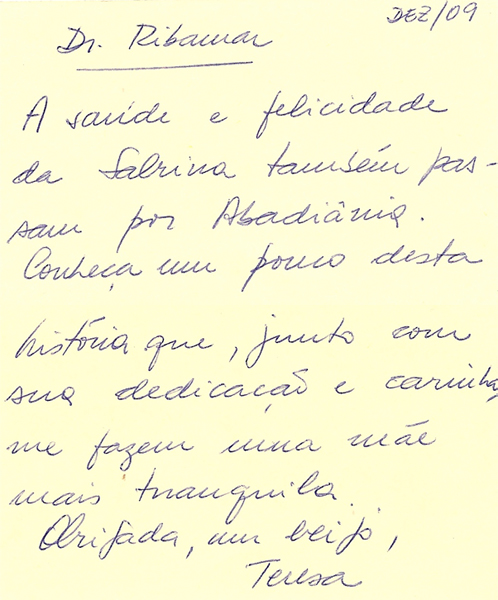 DEZ/09
Dr. Ribamar
A saúde e felicidade
da Sabrina também pas-
sam por Abadiânia.
Conheça um pouco desta
história que, junto com
sua dedicação e carinho,
me fazem uma mãe
mais tranquila.
Obrigada, um beijo,
Teresa